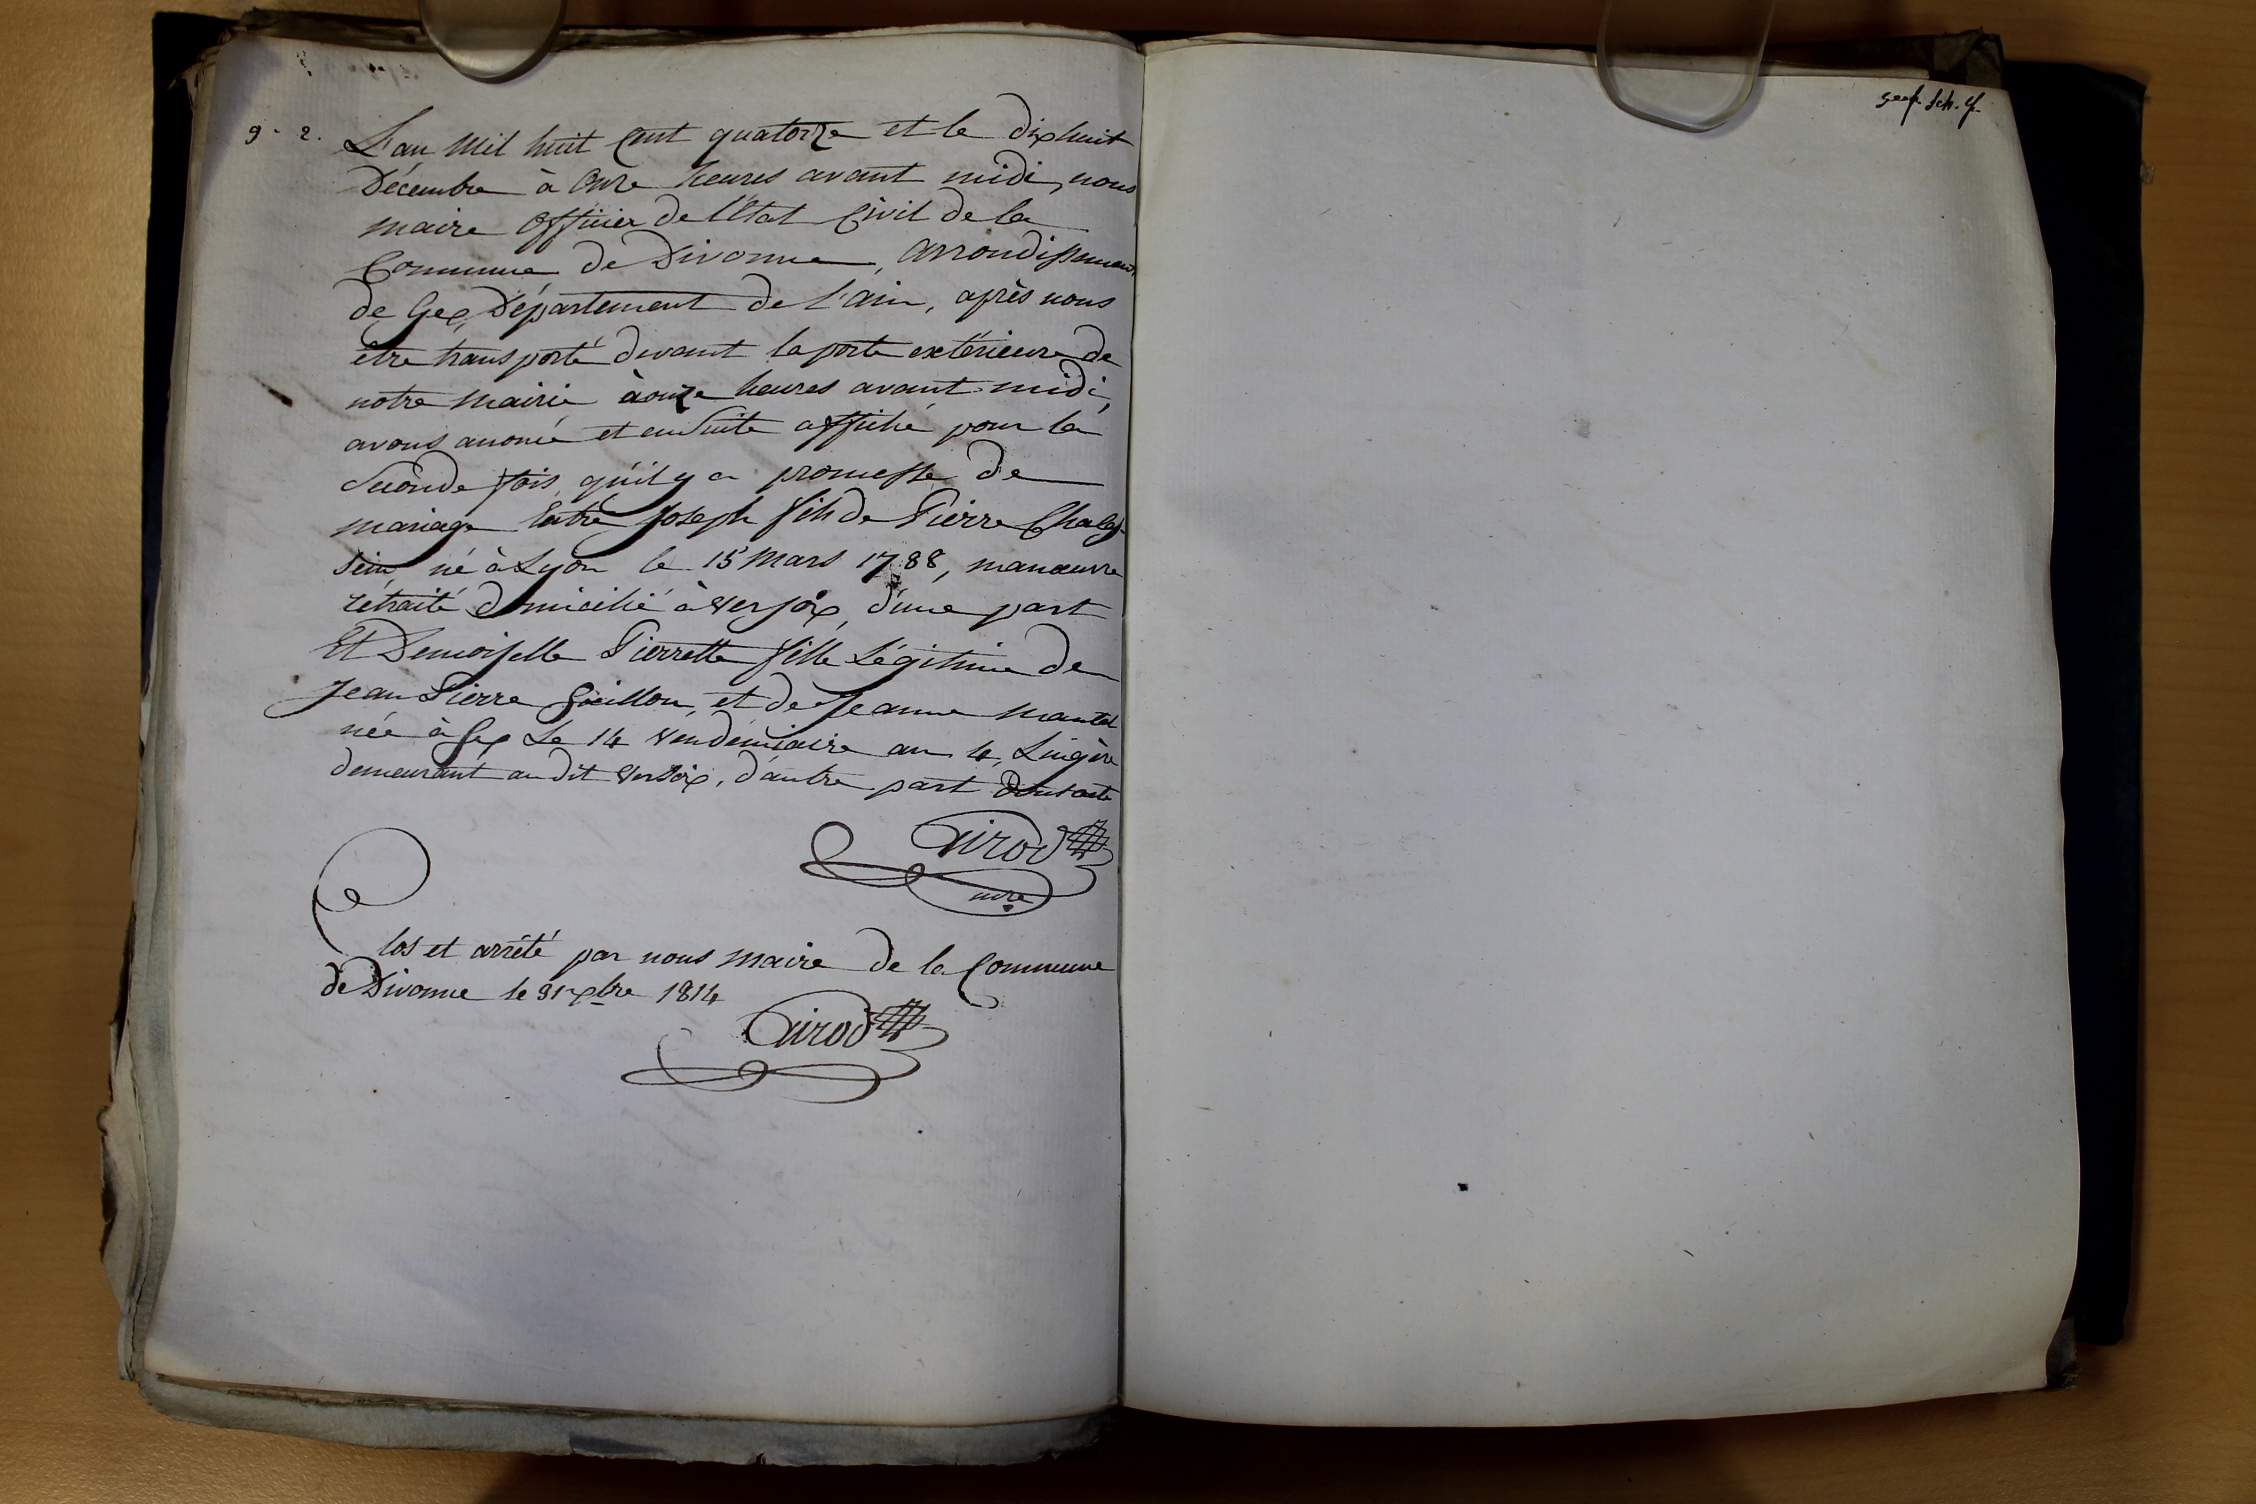 9 - 2. L'an Mil huit Cent quatorze et le dixhuit
Décembre à Onze heures avant midi, nous
maire Officier de l'Etat Civil de la
Commune de Divonne, Arrondissement
de Gex, Département de l'ain, après nous
être transporté devant la porte extérieure de
notre Mairie à onze heures avant midi,
avons anoncé et ensuite affiché pour la
Seconde fois, qu'il y a promesse de
mariage Entre Joseph fils de Pierre Chalas-
sin né à Lyon le 15 Mars 1788, manœuvre
retraité domicilié à Versoix, d'une part
Et Demoiselle Pierrette fille Légitime de
Jean Pierre et de Jeanne Mantel
née à Gex Le 14 Vendémiaire an 4, Lingère
demeurant au dit Versoix, d'autre part Dont acte
Girod
Clos et arrêté par nous Maire de la Commune
de Divonne le 31 xbre 1814
Girod